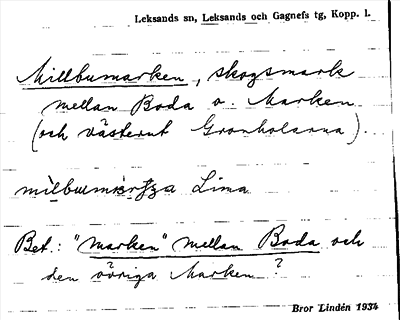 Leksands sn, Leksands och Gagnefs tg, Kopp. l.
Millbumarken, skogsmark
mellan Boda o. Marken
(och västerut Gronholarna).
Lima
Bet.: "marken" mellan Boda och
den övriga Marken ?
Bror Lindén 1934